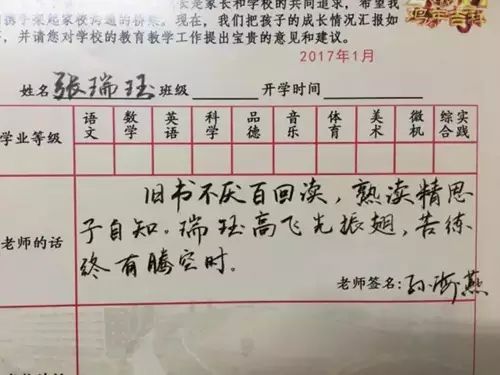 长是家长和学校的共同追求，希望我
们携手架起家校沟通的桥梁。现在，我们把孩子的成长情况汇报如
并请您对学校的教育教学工作提出宝贵的意见和建议。
鸡年吉祥
2017年1月
姓名 张瑞珏 班级 开学时间
学业等级 语文 数学 英语 科学 品德 音乐 体育 美术 微机 综合实践
老师的话
旧书不厌百回读，熟读精思
子自知。瑞珏高飞先振翅，苦练
终有腾空时。
老师签名：孙海燕